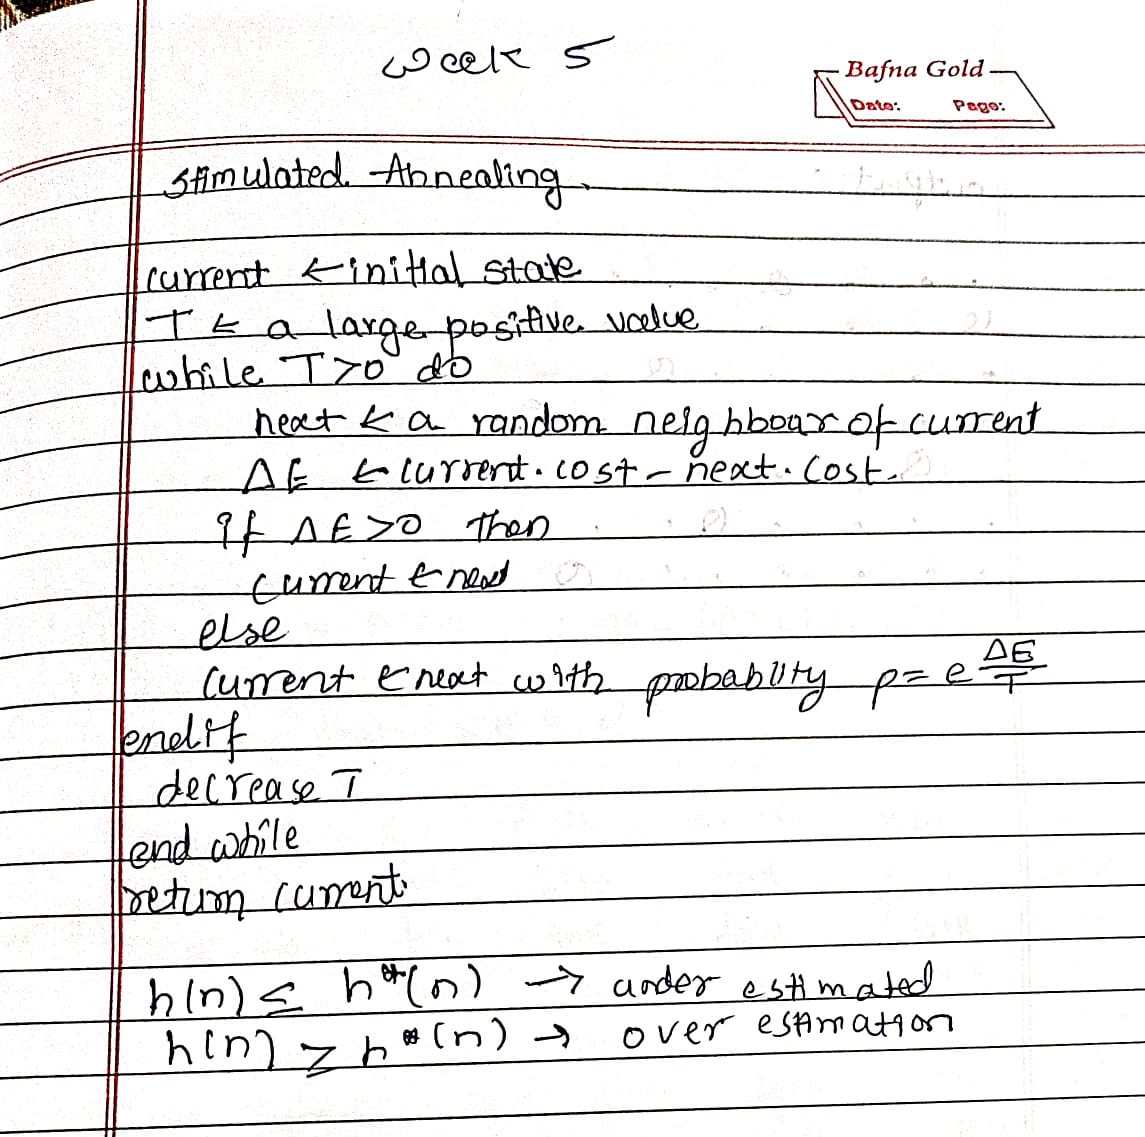 week 5
Bafna Gold
Date: Page:
Stimulated Annealing
current ← initial state
T ← a large positive value
while T>0 do
next ← a random neighbour of current
ΔE ← current.cost - next.cost
If ΔE>0 then
current ← next
else
current ← next with probablity p = e ΔE/T
endif
decrease T
end while
return current
h(n) ≤ h*(n) → under estimated
h(n) ≥ h*(n) → over estimation